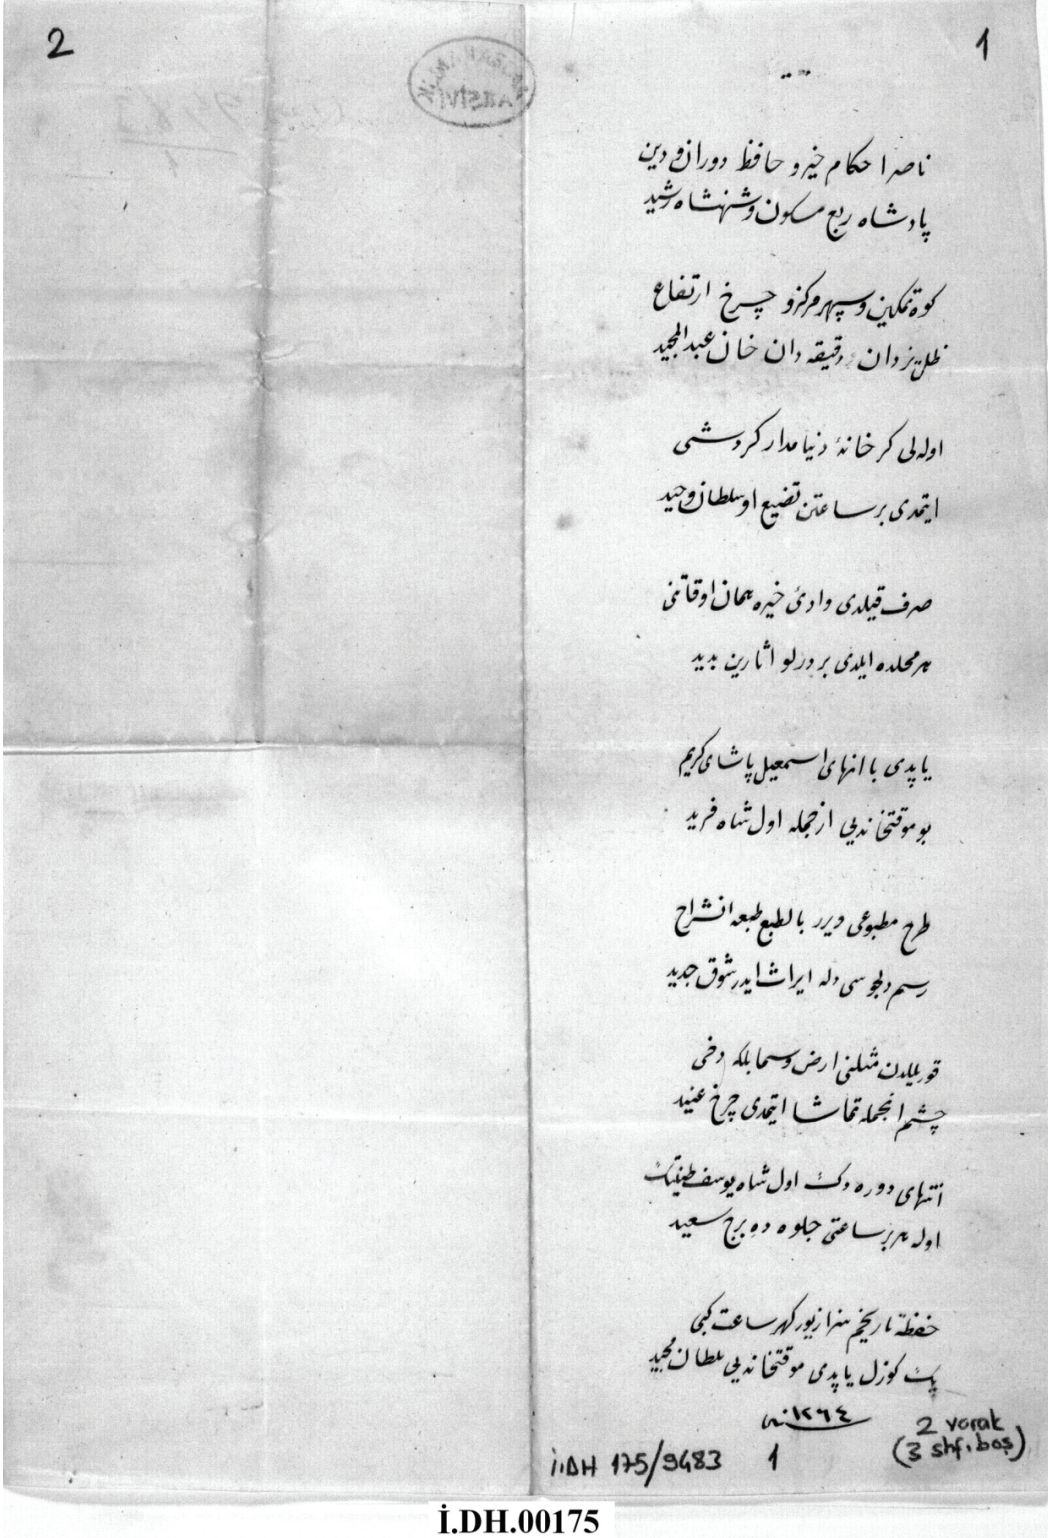 2
1
ناصر احكام خير و حافظ دوران و دين
پادشاه ربع مسكون و شهنشاه رشيد
كوه تمكين و سپهر مركز و چرخ ارتفاع
ظل يزدان دقيقه دان خان عبدالمجيد
اوله لى كر خانهٔ دنيا مدار كردشى
ايتمدى بر ساعتن تضيع او سلطان وحيد
صرف قيلدى وادئ خيره همان اوقاتنى
هر محلده ايلدى بر درلو اثارين بديد
ياپدى با انهاى اسمعيل پاشاى كريم
بو موقتخانه يى از جمله اول شاه فريد
طرح مطبوعى ويرر بالطبع طبعه انشراح
رسم دلجوسى دله ايراث ايدر شوق جديد
قوريلدن مثلنى ارض و سما بلكه دخى
چشم انجمله تماشا ايتمدى چرخ عنيد
انتهاى دوره دك اول شاه يوسف طينتك
اوله هر بر ساعتى جلوه ده برج سعيد
تاريخم هنرازيور كهر ساعت كبى
پك كوزل ياپدى موقتخانه يى سلطان مجيد
سنه ١٢٦٤
2 varak
(3 shf. boş)
İ.DH 175/9483
1
İ.DH.00175